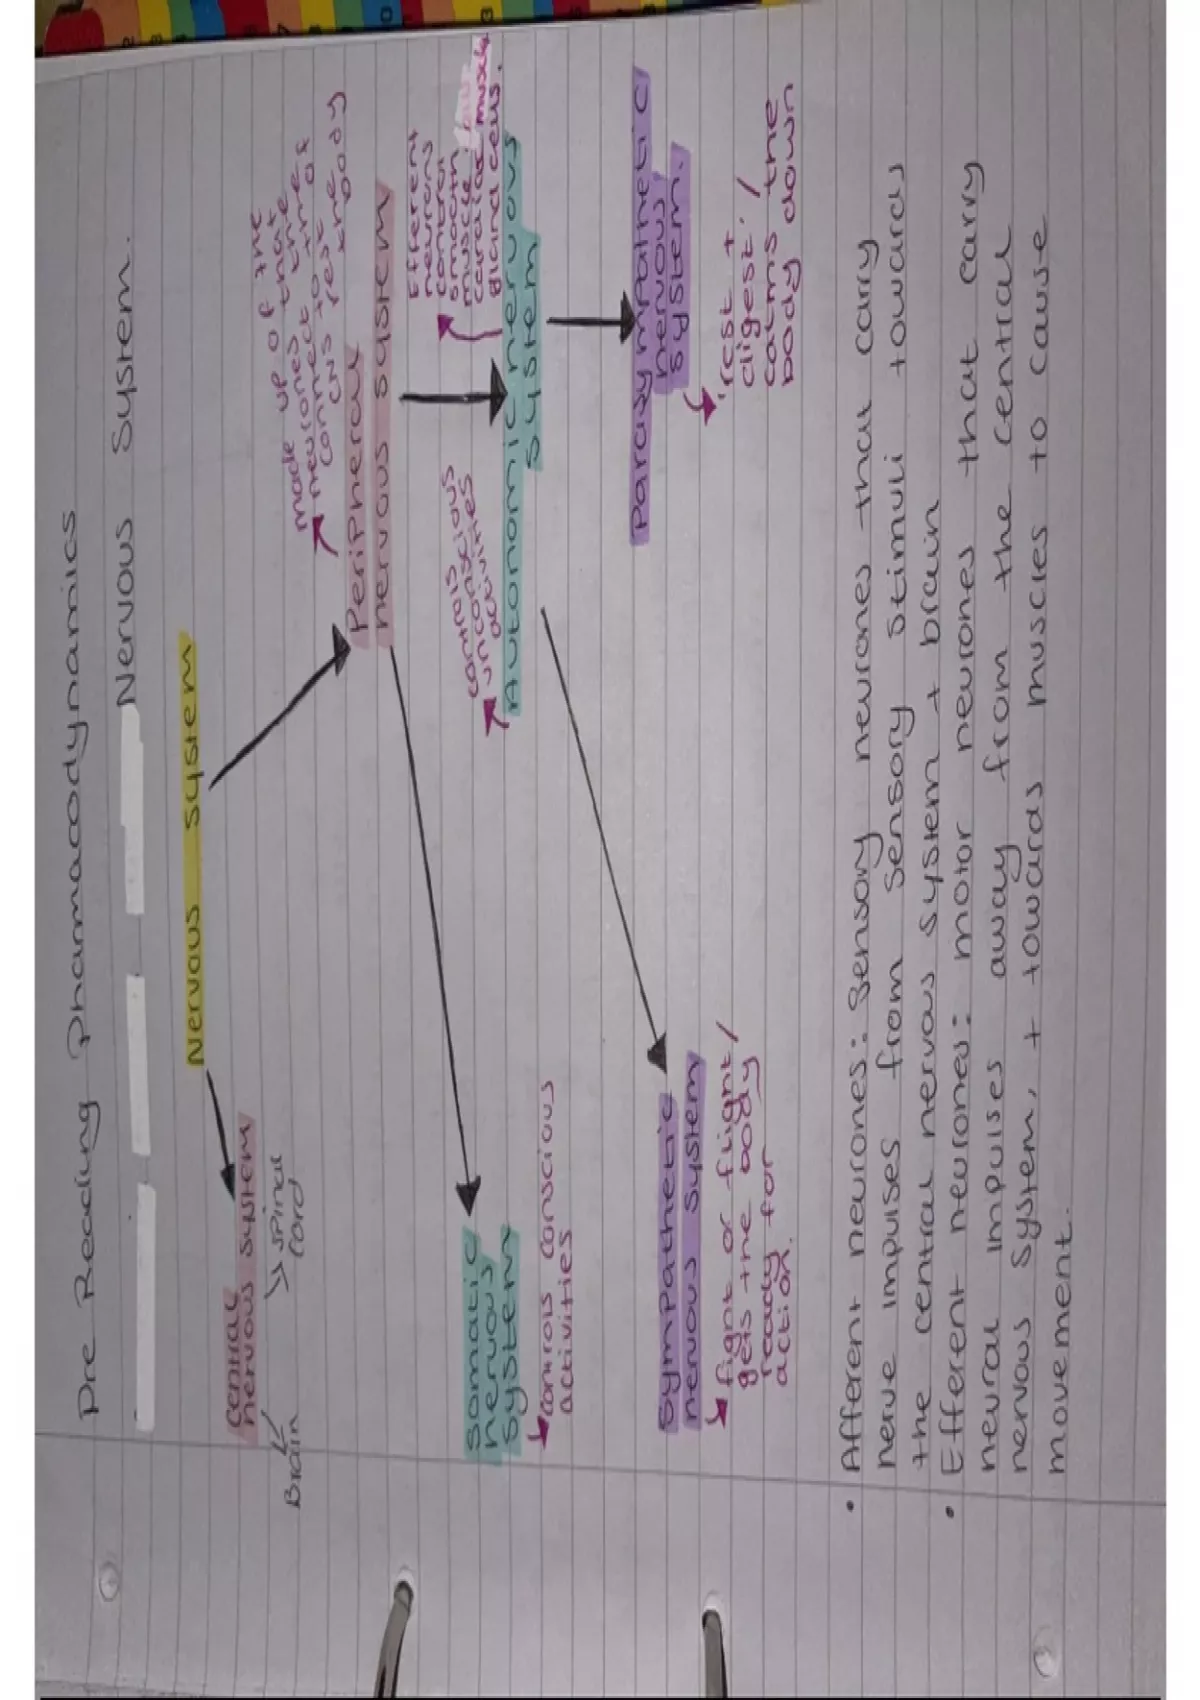 Pre Reading Phamacodynamics
Nervous System.
Nervous System
Central
nervous system
Brain
spinal
cord
made up of the
neurones that
connect the
CNS to the
rest of
the body
Peripheral
nervous system
Efferent
neurons
control
smooth
muscle,
cardiac muscle
gland cells.
controls
unconscious
activities
Autonomic nervous
system
Somatic
nervous
system
controls conscious
activities
Parasympathetic
nervous
system.
rest +
digest. /
calms the
body down
Sympathetic
nervous system
fight or flight /
gets the body
ready for
action.
• Afferent neurones: Sensory neurones that carry
nerve impulses from sensory stimuli towards
the central nervous system + brain
• Efferent neurones: motor neurones that carry
neural impulses away from the central
nervous system, + towards muscles to cause
movement.